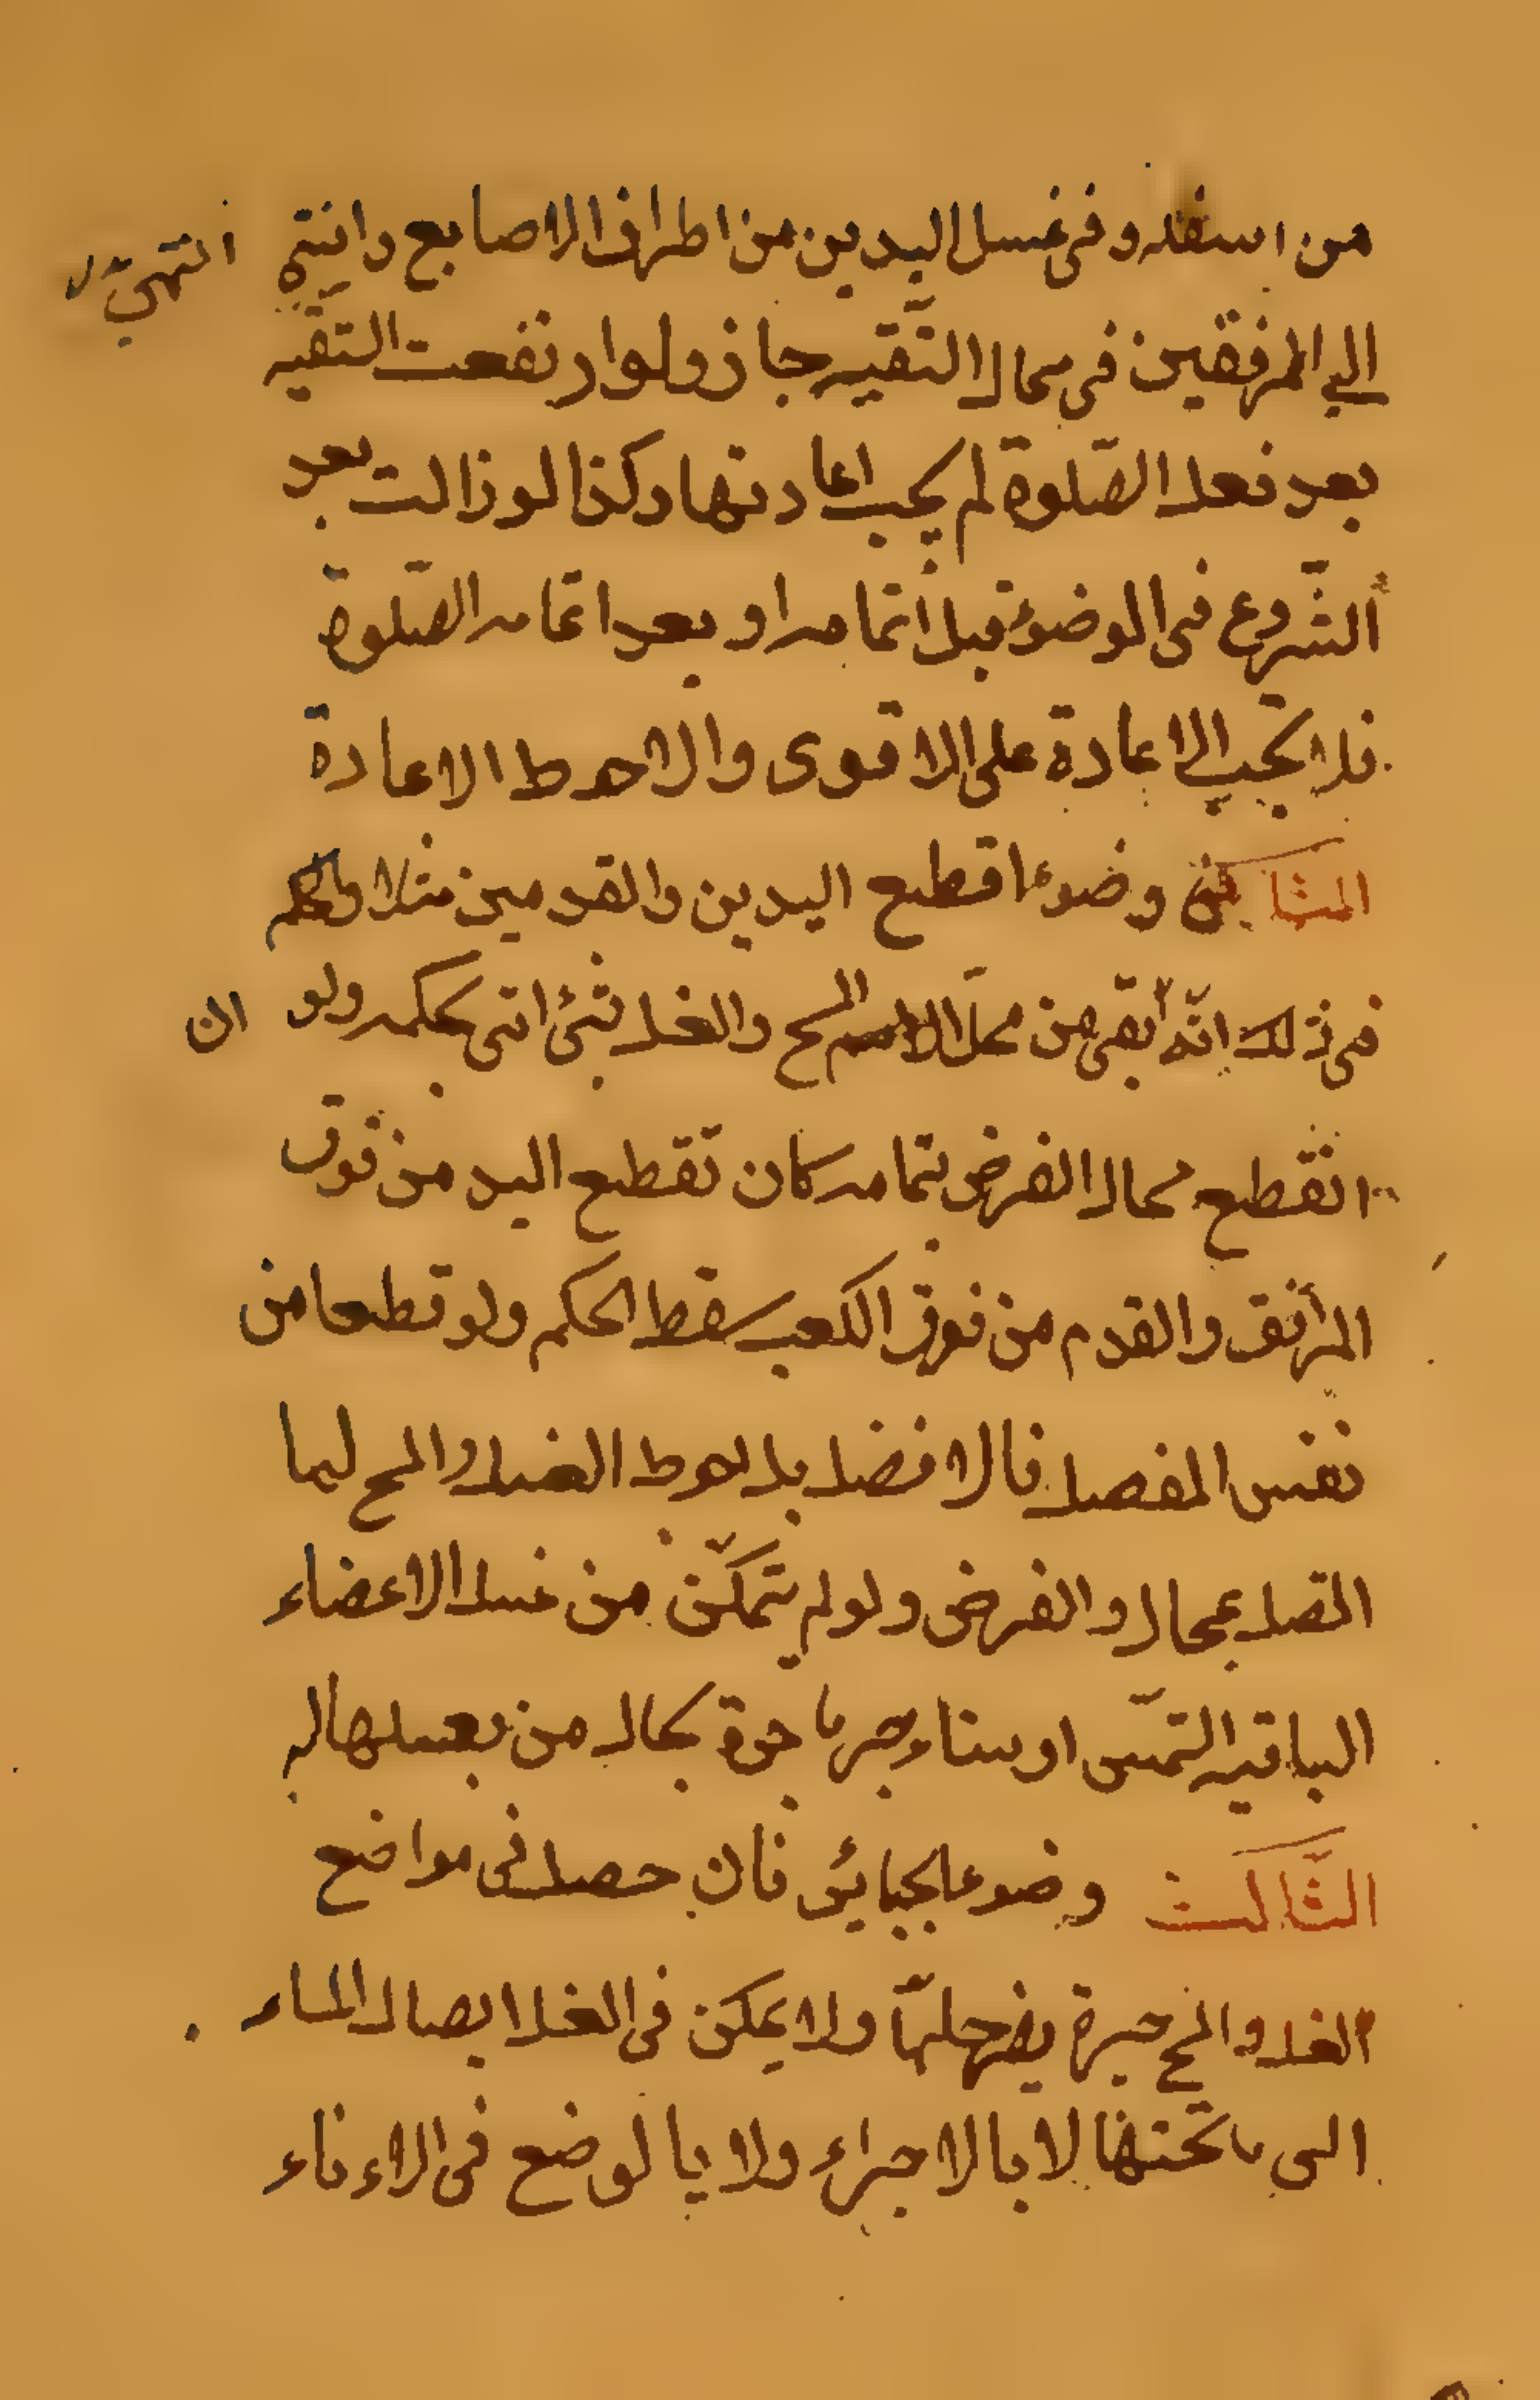 من اسفله وفى غسل اليدين من اطراف الاصابع وانتهى
الى المرفقين فى محال التقيه جاز ولو ارتفعت التقيه
بعد فعل الصّلوة لم يجب اعادتها وكذا لو زالت بعد
الشّروع فى الوضوء قبل اتمامه او بعد اتمامه الصّلوة
فلا تجب الاعادة على الاقوى والاحوط الاعادة
الثانى وضوء اقطع اليدين والقدمين مثلا والحكم
فى ذلك انّه ابقى من محلّ المسح والغسل شئ اتى بحكمه ولو ان
انقطع محال الفرض بتمامه كان تقطع اليد من فوق
المرفق والقدم من فوق الكعب سقط الحكم ولو قطعا من
نفس المفصل فالافضل بل الاحوط الغسل والمسح ليما
اتصل بمحال والفرض ولو لم يتمكّن من غسل الاعضاء
الباقيه التمس او ستاء جر باجرة بحال من يغسلها له
الثّالث وضوء الجبائر فان حصل فى مواضع
الغسل والمسح جبيرة يضرحلّها ولا يمكن فى الغسل ايصال الماء
الى ما تحتها لا بالاجراء ولا بالوضع فى الاناء